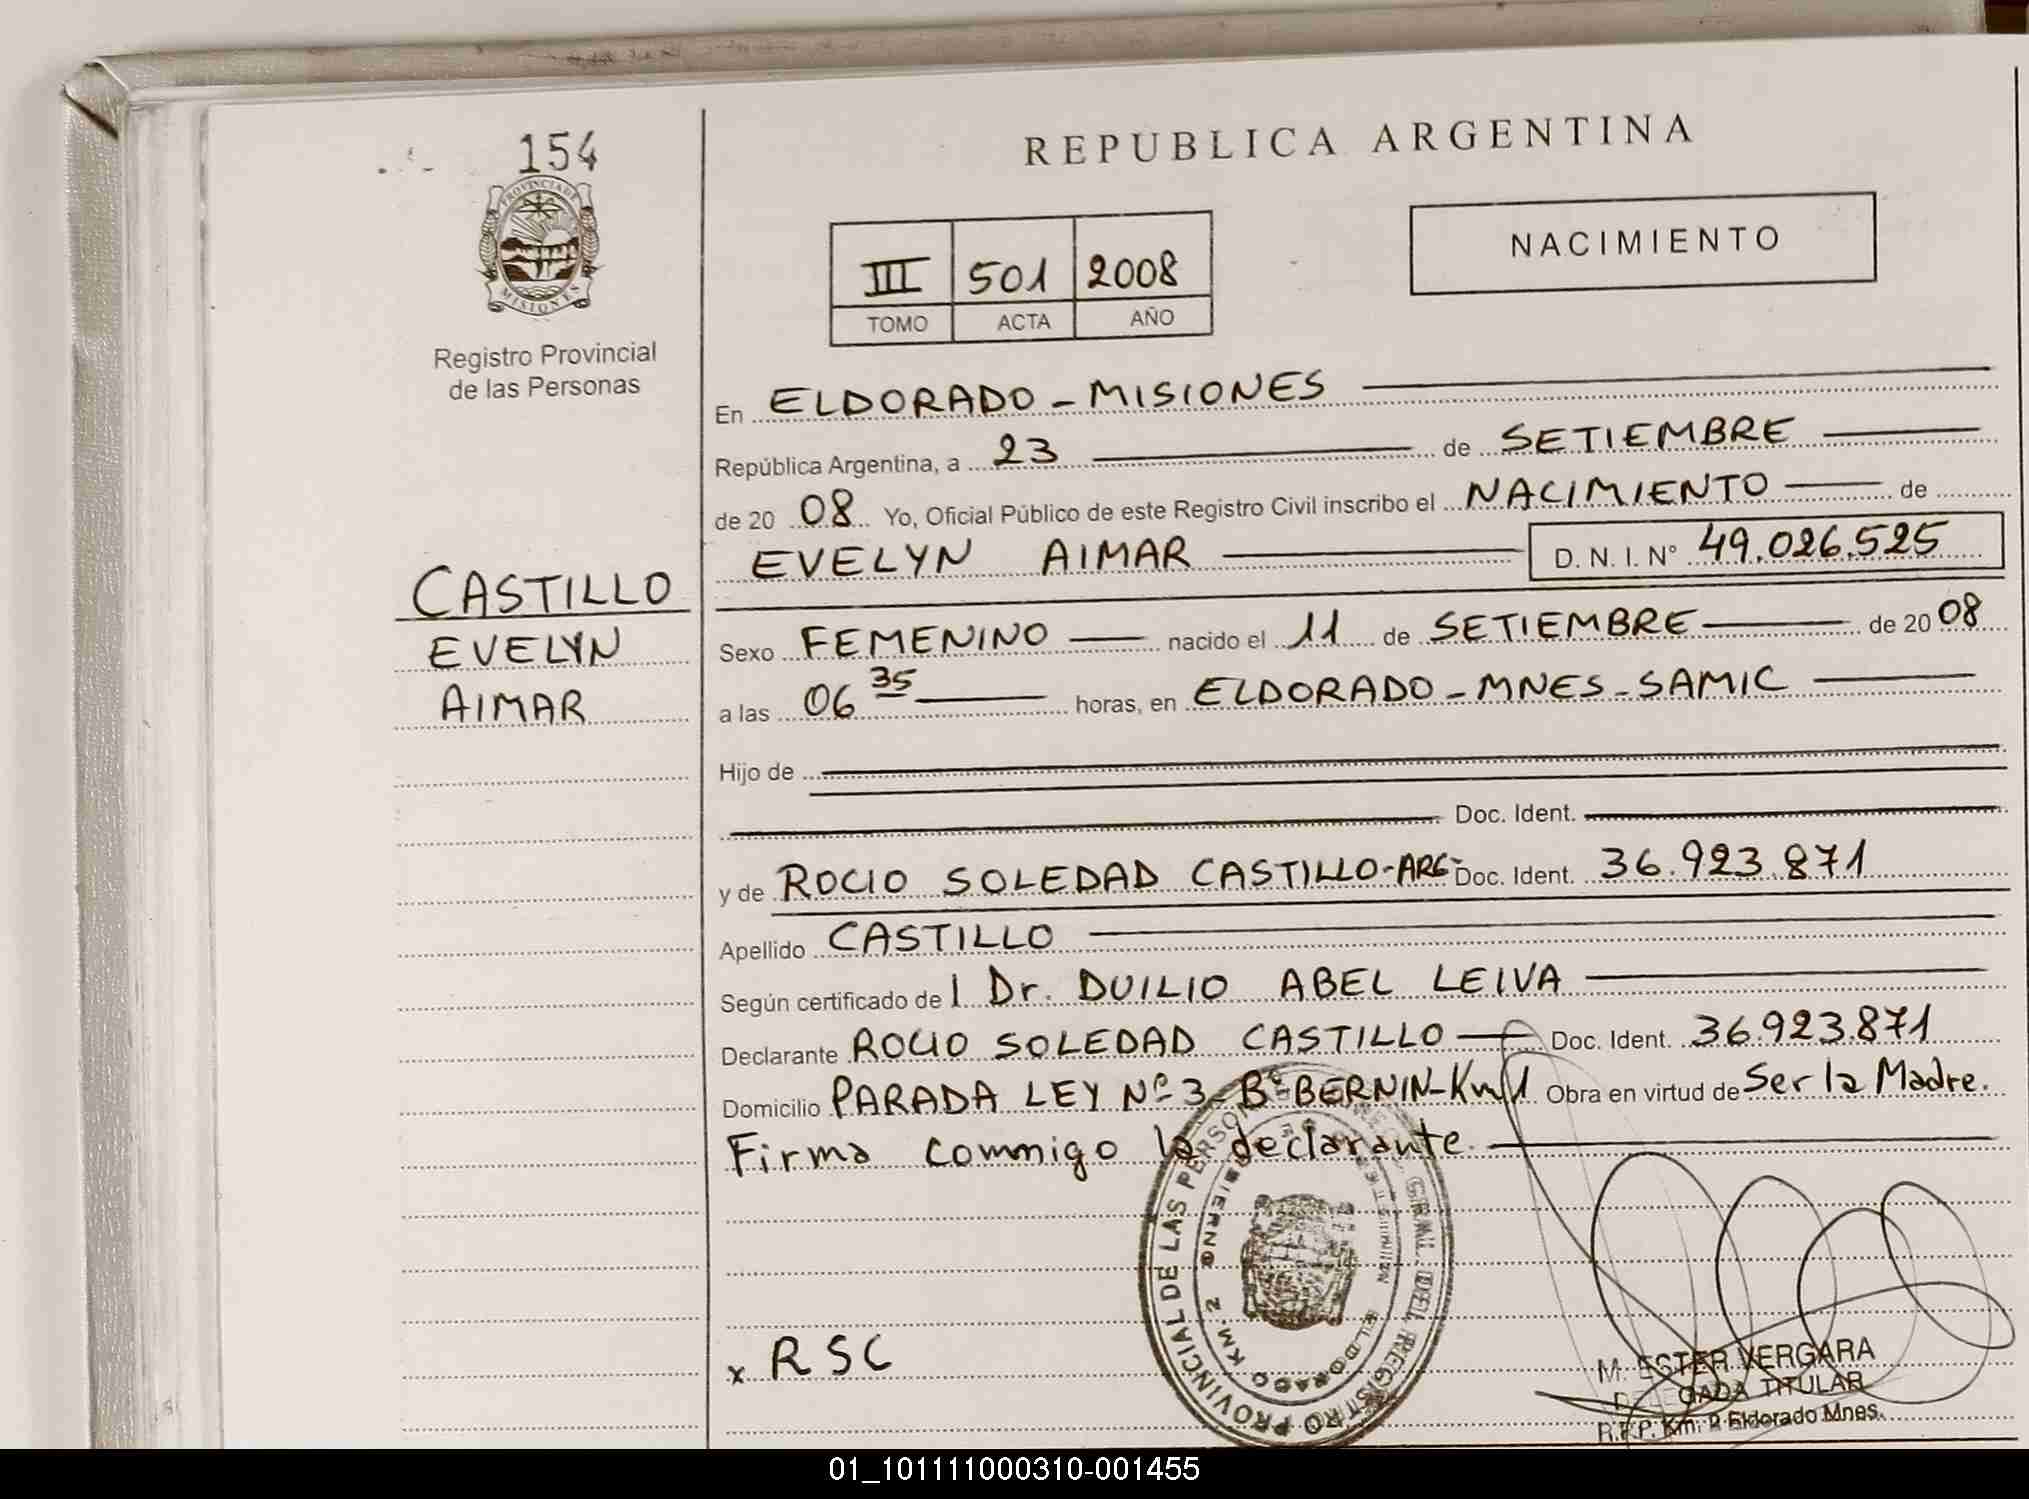 154
PROVINCIA DE
MISIONES
Registro Provincial
de las Personas
CASTILLO
EVELYN
AIMAR
REPUBLICA ARGENTINA
III 501 2008
TOMO ACTA AÑO
NACIMIENTO
En ELDORADO - MISIONES
República Argentina, a 23 de SETIEMBRE
de 20 08 Yo, Oficial Público de este Registro Civil inscribo el NACIMIENTO de
EVELYN AIMAR D. N. I. N° 49.026.525
Sexo FEMENINO nacido el 11 de SETIEMBRE de 20 08
a las 06 35 horas, en ELDORADO - MNES - SAMIC
Hijo de
Doc. Ident.
y de ROCIO SOLEDAD CASTILLO-ARG- Doc. Ident. 36.923.871
Apellido CASTILLO
Según certificado de l Dr. DUILIO ABEL LEIVA
Declarante ROCIO SOLEDAD CASTILLO Doc. Ident. 36.923.871
Domicilio PARADA LEY Nº 3 - Bº BERNIN-Km 1 Obra en virtud de Ser la Madre.
Firma commigo la declarante.
x RSC
REGISTRO PROVINCIAL DE LAS PERSON
ELDORADO KM. 2
M. ESTER VERGARA
DELEGADA TITULAR
R.P.P. Km. 2 Eldorado Mnes.
01_101111000310-001455